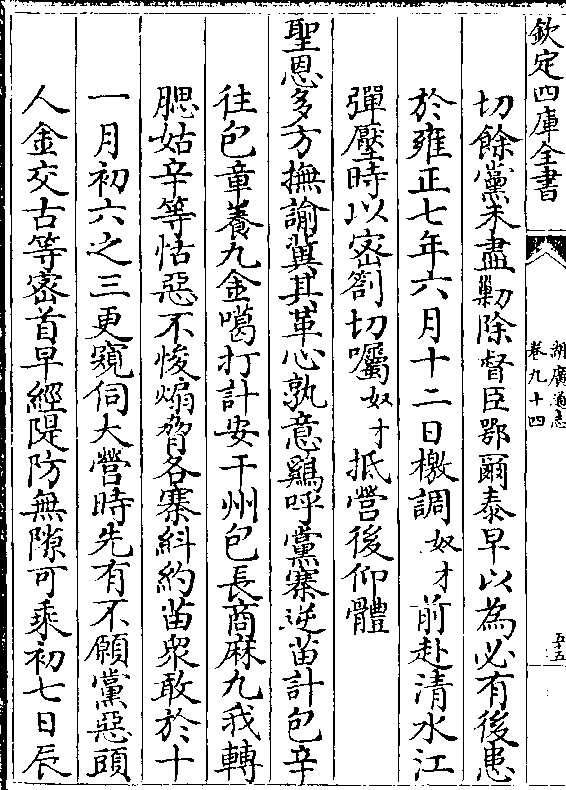 欽定四庫全書
湖廣通志
卷九十四
五十五
切餘黨未盡勦除督臣鄂爾泰早以為必有後患
於雍正七年六月十二日檄調奴才前赴清水江
彈壓時以密劄切囑奴才抵營後仰體
聖恩多方撫諭冀其革心孰意鷄呼黨寨逆苗計包辛
往包章養九金噶打計安干州包長商麻九我轉
腮姑辛等怙惡不悛煽脅各寨糾約苗衆敢於十
一月初六之三更窺伺大營時先有不願黨惡頭
人金交古等密首早經隄防無隙可乘初七日辰